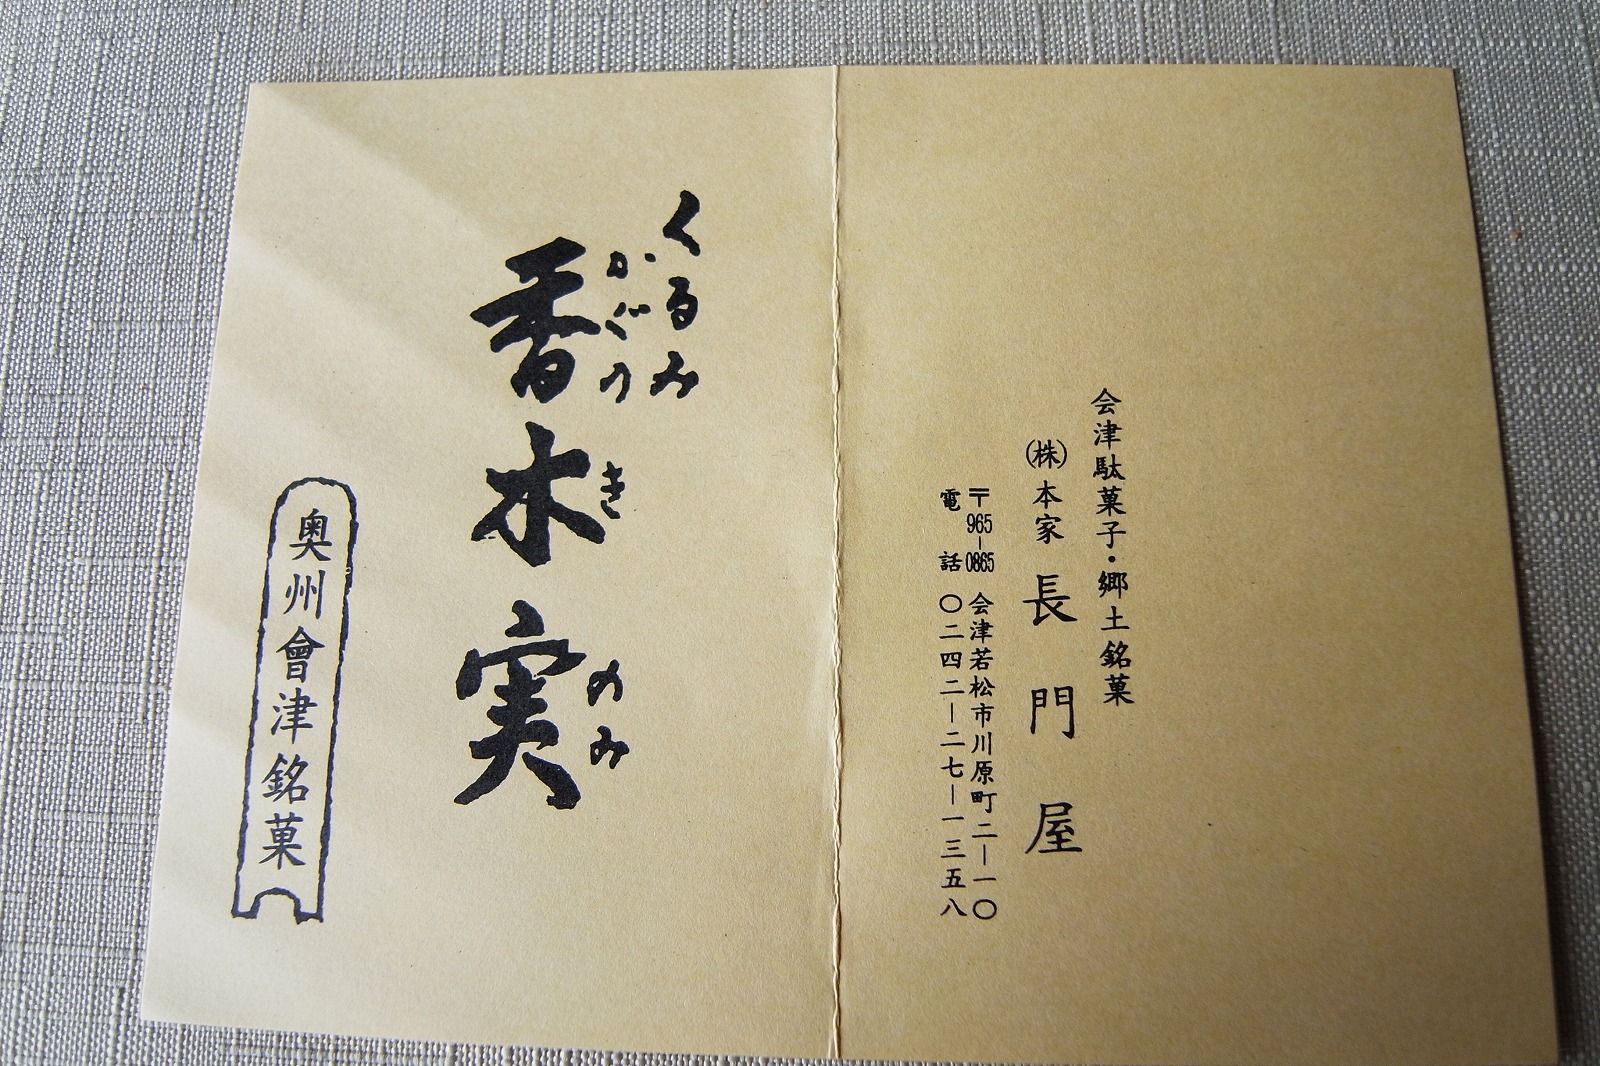 会津駄菓子・郷土銘菓
(株)本家長門屋
〒965-0865 会津若松市川原町二ー一〇
電話 〇二四二ー二七ー一三五八
くるみ
かぐのきのみ
香木実
奥州會津銘菓